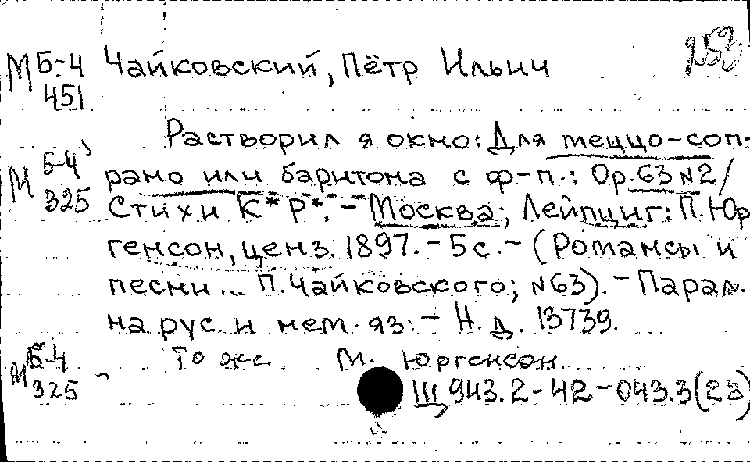 М Б-4 Чайковский, Пётр Ильич 253
451
Растворил я окно: Для меццо-соп-
М Б-4 рамо или баритона с ф-п.; Op.63 №2/
325 Стихи К*Р*. - Москва; Лейпциг: П. Юр
генсон, ценз. 1897. - 5 с. - (Романсы и
песни... П. Чайковского; №63). - Парал.
на рус. и нем. яз. - Н. д. 13739.
М Б-4 То же М. Юргенсон
325
Щ 943.2-42-043.3(2